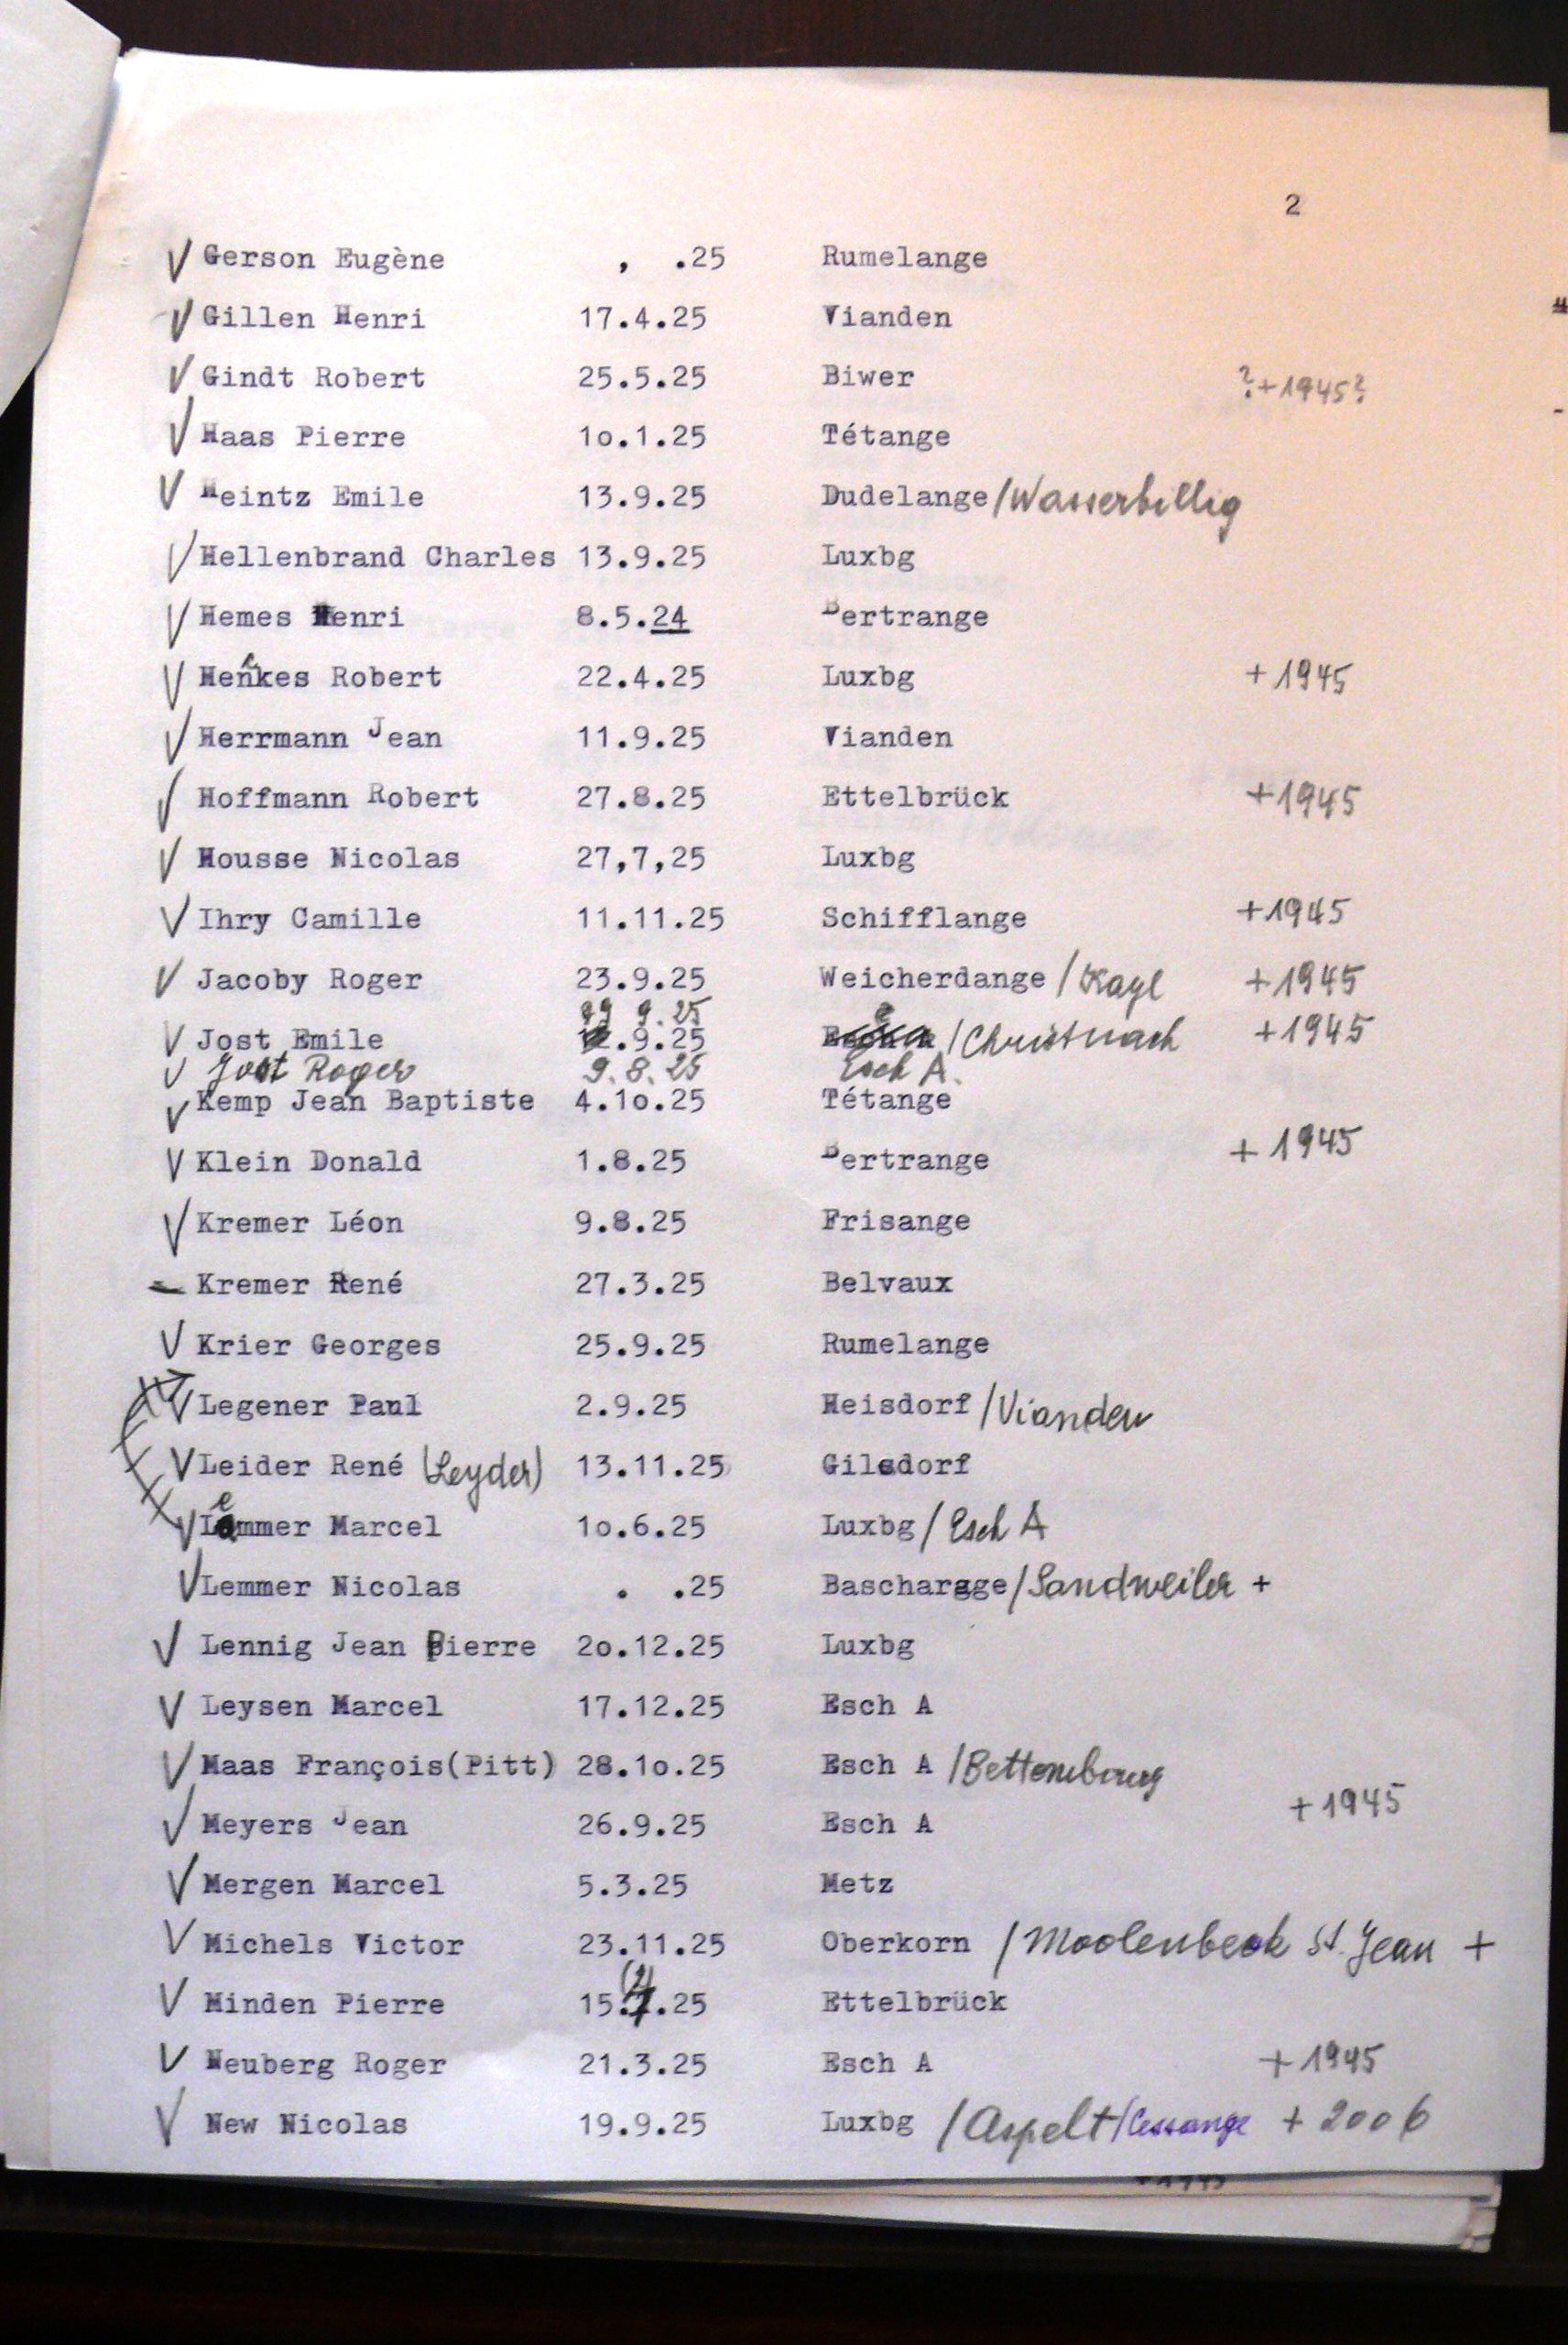 2
V Gerson Eugène , .25 Rumelange
V Gillen Henri 17.4.25 Vianden
V Gindt Robert 25.5.25 Biwer ?+1945?
V Haas Pierre 1o.1.25 Tétange
V Heintz Emile 13.9.25 Dudelange/Wasserbillig
V Hellenbrand Charles 13.9.25 Luxbg
V Hemes Henri 8.5.24 Bertrange
V Henkes Robert 22.4.25 Luxbg + 1945
V Herrmann Jean 11.9.25 Vianden
V Hoffmann Robert 27.8.25 Ettelbrück +1945
V Housse Nicolas 27,7,25 Luxbg
V Ihry Camille 11.11.25 Schifflange +1945
V Jacoby Roger 23.9.25 Weicherdange /Kayl +1945
9.25
V Jost Emile .9.25 /Christnach +1945
V Jost Roger 9.8.25 Esch A.
V Kemp Jean Baptiste 4.1o.25 Tétange
V Klein Donald 1.8.25 Bertrange + 1945
V Kremer Léon 9.8.25 Frisange
- Kremer René 27.3.25 Belvaux
V Krier Georges 25.9.25 Rumelange
V Legener Paul 2.9.25 Heisdorf /Vianden
V Leider René (Leyder) 13.11.25 Gilsdorf
V Lemmer Marcel 1o.6.25 Luxbg/ Esch A
V Lemmer Nicolas . .25 Bascharage/Sandweiler +
V Lennig Jean Pierre 2o.12.25 Luxbg
V Leysen Marcel 17.12.25 Esch A
V Maas François(Pitt) 28.1o.25 Esch A /Bettembourg
V Meyers Jean 26.9.25 Esch A + 1945
V Mergen Marcel 5.3.25 Metz
V Michels Victor 23.11.25 Oberkorn /Moolenbeek St. Jean +
V Minden Pierre 15. .25 Ettelbrück
V Neuberg Roger 21.3.25 Esch A + 1945
V New Nicolas 19.9.25 Luxbg /Aspelt/Cessange + 2006